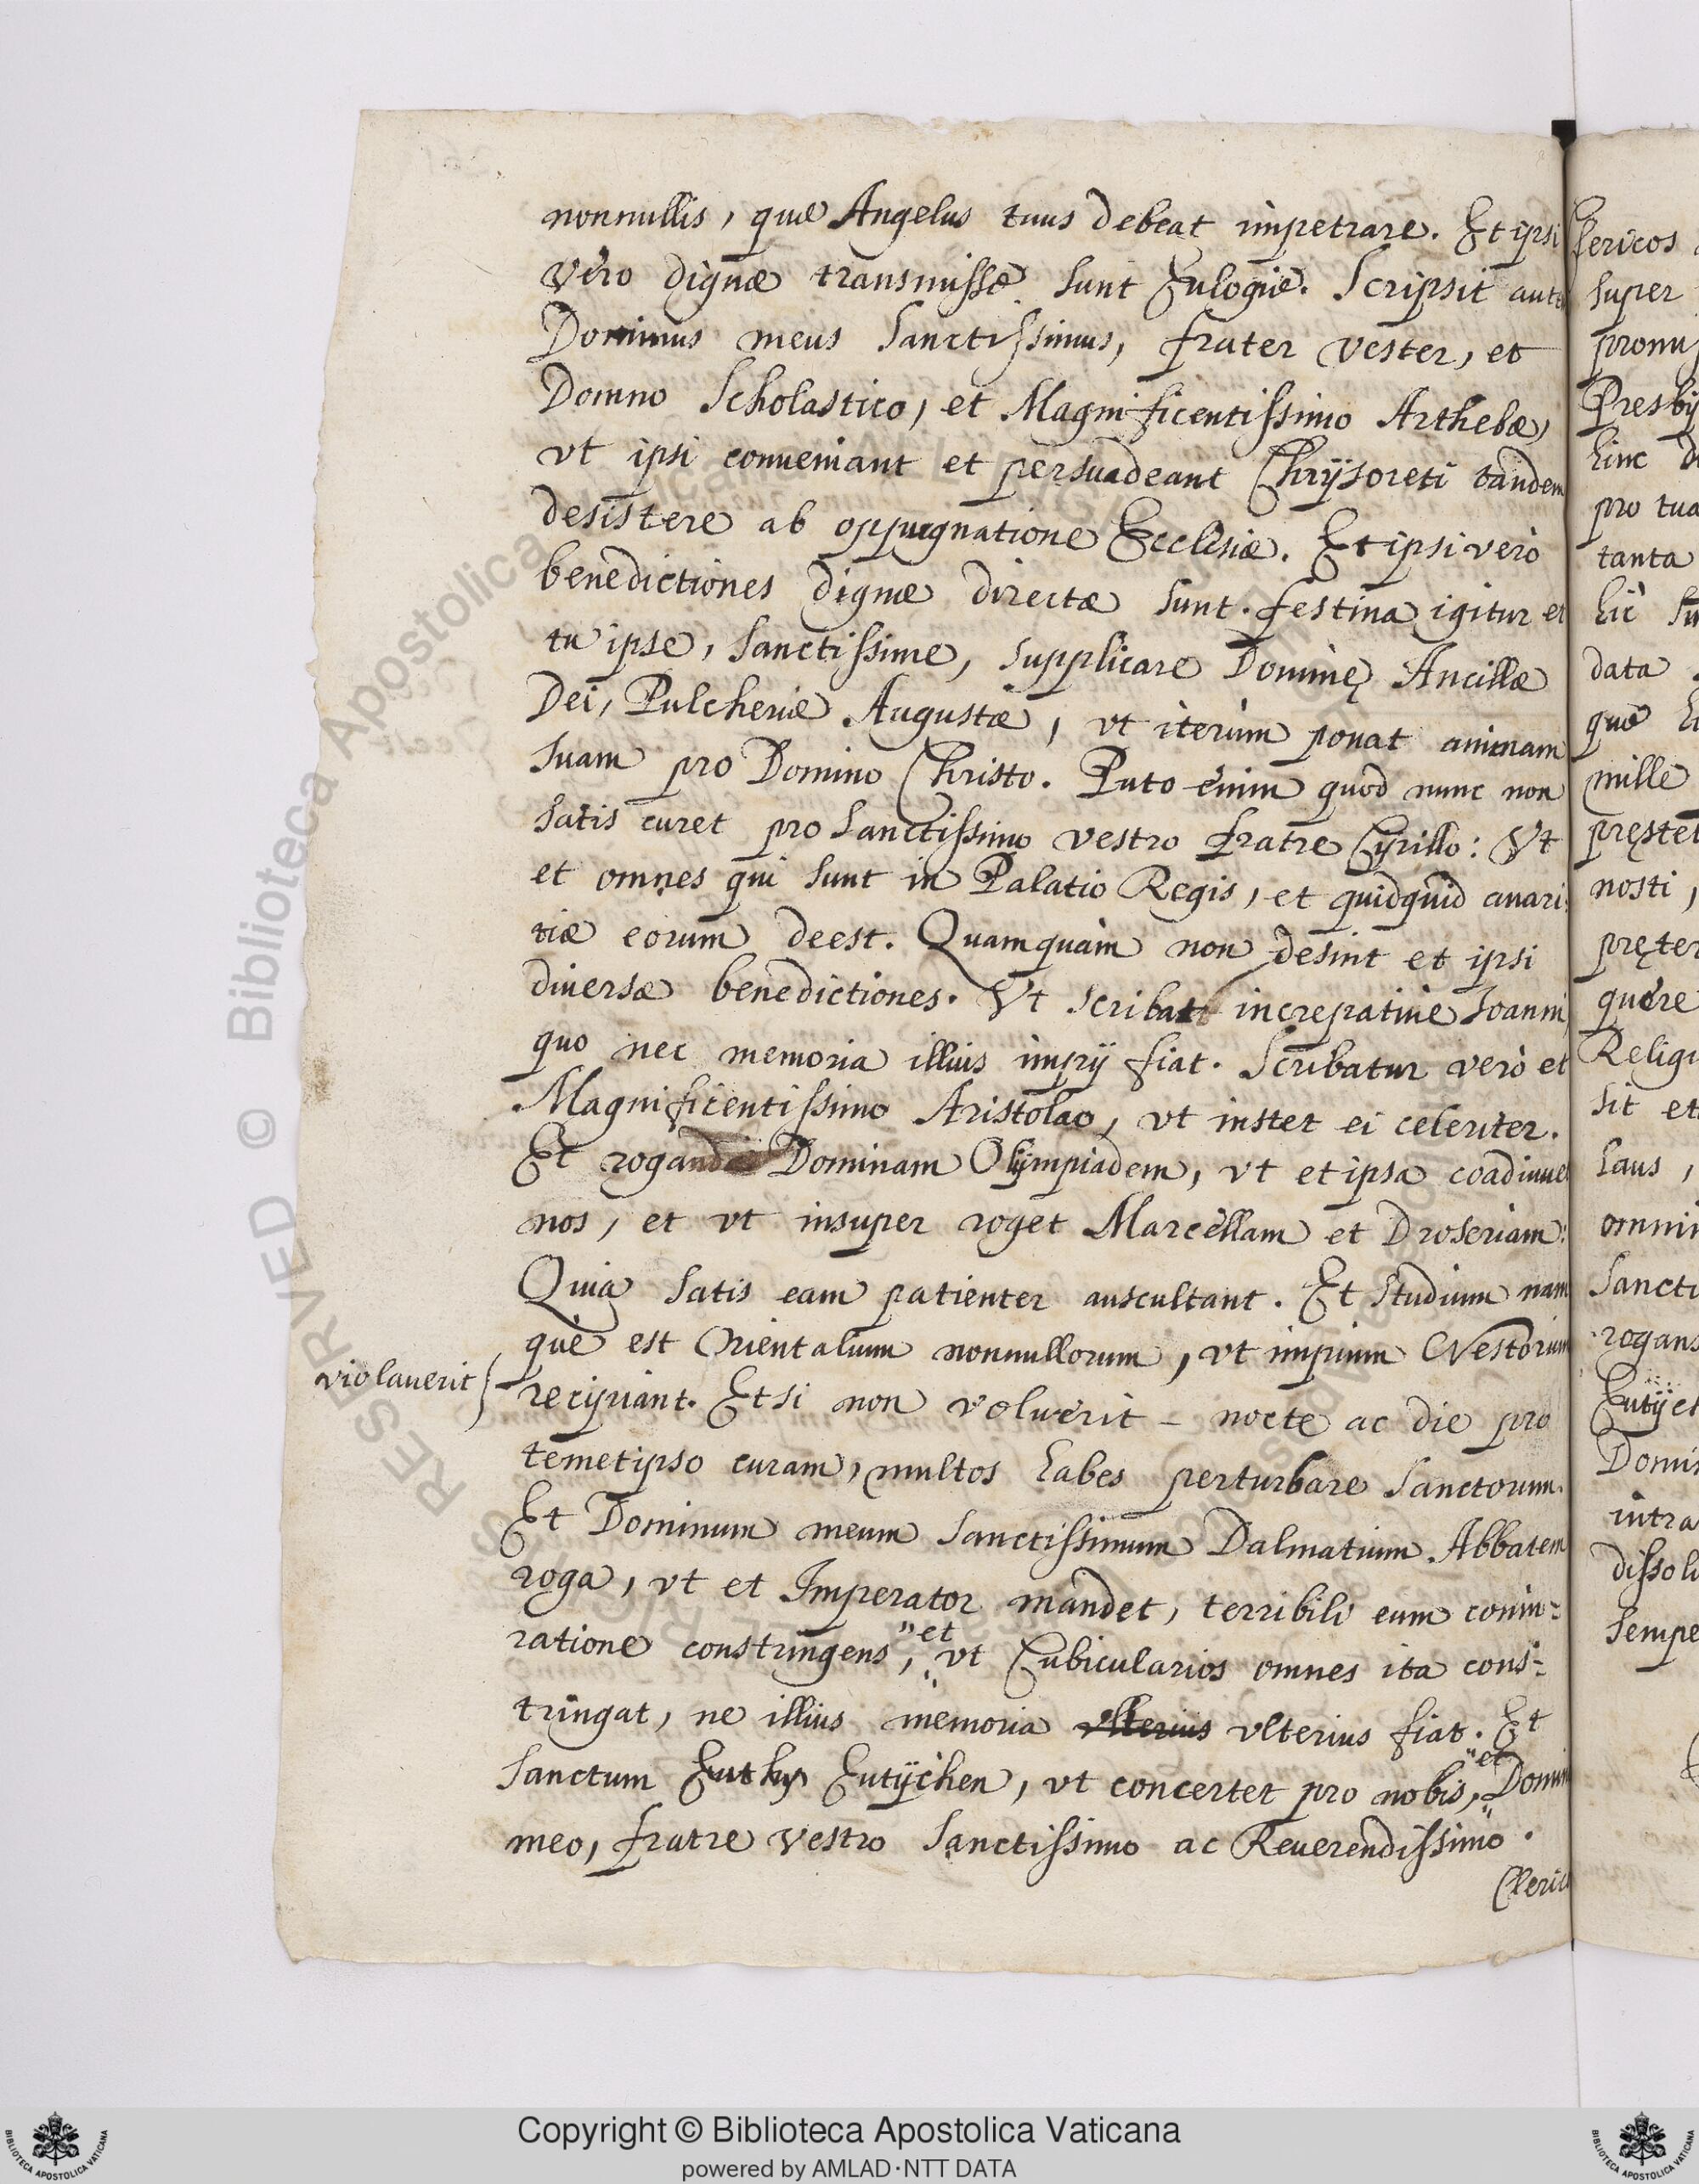 nonnullis, quæ Angelus tuus debeat impetrare. Et ipsi
vero dignæ transmissæ sunt Eulogiæ. Scripsit aute
Dominus meus Sanctissimus, frater vester, et
Domno Scholastico, et Magnificentissimo Arthebæ,
vt ipsi conueniant et persuadeant Chrÿsoreti tandem
desistere ab oppugnatione Ecclesiæ. Et ipsi verò
benedictiones dignæ directæ sunt. festina igitur et
tu ipse, Sanctissime, supplicare Dominę Ancillæ
Dei, Pulcheriæ Augustæ, vt iterùm ponat animam
suam pro Domino Christo. Puto enim quod nunc non
satis curet pro Sanctissimo vestro fratre Cyrillo: Vt
et omnes qui sunt in Palatio Regis, et quidquid auari
tiæ eorum deest. Quamquàm non desint et ipsi
diuersæ benedictiones. Vt scribat increpatiue Ioanni,
quo nec memoria illius impij fiat. Scribatur verò et
Magnificentissimo Aristolao, vt instet ei celeriter.
Et roga Dominam Olÿmpiadem, vt et ipsa coadiuue
nos, et vt insuper roget Marcellam et Droseriam:
Quia satis eam patienter auscultant. Et studium nam
què est Orientalium nonnullorum, vt impium Nestorium
violauerit
recipiant. Et si non voluerit – nocte ac die pro
temetipso curam, multos habes perturbare Sanctorum.
Et Dominum meum Sanctissimum Dalmatium Abbatem
roga, vt et Imperator mandet, terribili eum coniu-
ratione constringens, et vt Cubicularios omnes ita cons-
tringat, ne illius memoria vlterius vlterius fiat. Et
Sanctum Euthy Eutÿchen, vt concertet pro nobis, et Domin
meo, fratre vestro Sanctissimo ac Reuerendissimo.
Cleric
fericos
super
pronu
Presby
hinc
pro tua
tanta
hic su
data
quæ
mille
pręstet
nosti,
pręter
quære
Religi
sit et
laus,
omni
Sancti
rogans
Eutÿc
Domi
intra
dissol
sempe
RESERVED © Biblioteca Apostolica Vaticana
Copyright © Biblioteca Apostolica Vaticana
powered by AMLAD·NTT DATA
BIBLIOTECA APOSTOLICA VATICANA
BIBLIOTECA APOSTOLICA VATICANA